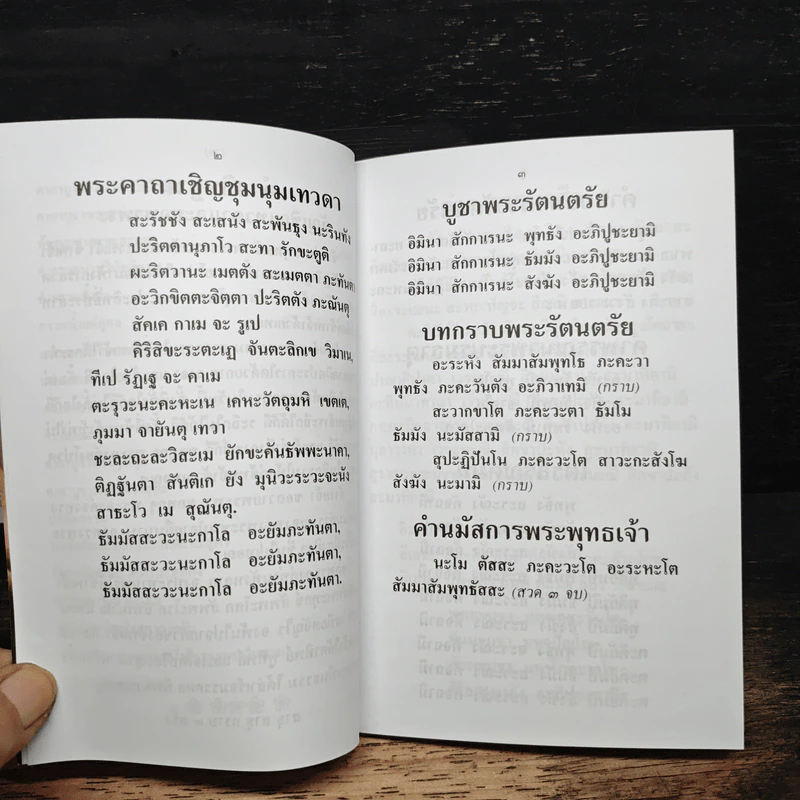 ๒
พระคาถาเชิญชุมนุมเทวดา
สะรัชชัง สะเสนัง สะพันธุง นะรินทัง
ปะริตตานุภาโว สะทา รักขะตูติ
ผะริตวานะ เมตตัง สะเมตตา ภะทันตา
อะวิกขิตตะจิตตา ปะริตตัง ภะณันตุ
สัคเค กาเม จะ รูเป
คิริสิขะระตะเฏ จันตะลิกเข วิมาเน,
ทีเป รัฏเฐ จะ คาเม
ตะรุวะนะคะหะเน เคหะวัตถุมหิ เขตเต,
ภุมมา จายันตุ เทวา
ชะละถะละวิสะเม ยักขะคันธัพพะนาคา,
ติฏฐันตา สันติเก ยัง มุนิวะระวะจะนัง
สาธะโว เม สุณันตุ.
ธัมมัสสะวะนะกาโล อะยัมภะทันตา,
ธัมมัสสะวะนะกาโล อะยัมภะทันตา,
ธัมมัสสะวะนะกาโล อะยัมภะทันตา.
๓
บูชาพระรัตนตรัย
อิมินา สักกาเรนะ พุทธัง อะภิปูชะยามิ
อิมินา สักกาเรนะ ธัมมัง อะภิปูชะยามิ
อิมินา สักกาเรนะ สังฆัง อะภิปูชะยามิ
บทกราบพระรัตนตรัย
อะระหัง สัมมาสัมพุทโธ ภะคะวา
พุทธัง ภะคะวันตัง อะภิวาเทมิ (กราบ)
สะวากขาโต ภะคะวะตา ธัมโม
ธัมมัง นะมัสสามิ (กราบ)
สุปะฏิปันโน ภะคะวะโต สาวะกะสังโฆ
สังฆัง นะมามิ (กราบ)
คำนมัสการพระพุทธเจ้า
นะโม ตัสสะ ภะคะวะโต อะระหะโต
สัมมาสัมพุทธัสสะ (สวด ๓ จบ)